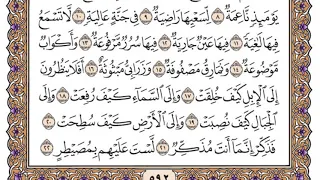 يَوۡمَئِذٖ نَّاعِمَةٞ ٨ لِّسَعۡيِهَا رَاضِيَةٞ ٩ فِي جَنَّةٍ عَالِيَةٖ ١٠ لَّا تَسۡمَعُ
فِيهَا لَٰغِيَةٗ ١١ فِيهَا عَيۡنٞ جَارِيَةٞ ١٢ فِيهَا سُرُرٞ مَّرۡفُوعَةٞ ١٣ وَأَكۡوَابٞ
مَّوۡضُوعَةٞ ١٤ وَنَمَارِقُ مَصۡفُوفَةٞ ١٥ وَزَرَابِيُّ مَبۡثُوثَةٌ ١٦ أَفَلَا يَنظُرُونَ
إِلَى ٱلۡإِبِلِ كَيۡفَ خُلِقَتۡ ١٧ وَإِلَى ٱلسَّمَآءِ كَيۡفَ رُفِعَتۡ ١٨ وَإِلَى
ٱلۡجِبَالِ كَيۡفَ نُصِبَتۡ ١٩ وَإِلَى ٱلۡأَرۡضِ كَيۡفَ سُطِحَتۡ ٢٠
فَذَكِّرۡ إِنَّمَآ أَنتَ مُذَكِّرٞ ٢١ لَّسۡتَ عَلَيۡهِم بِمُصَيۡطِرٍ ٢٢
٥٩٢